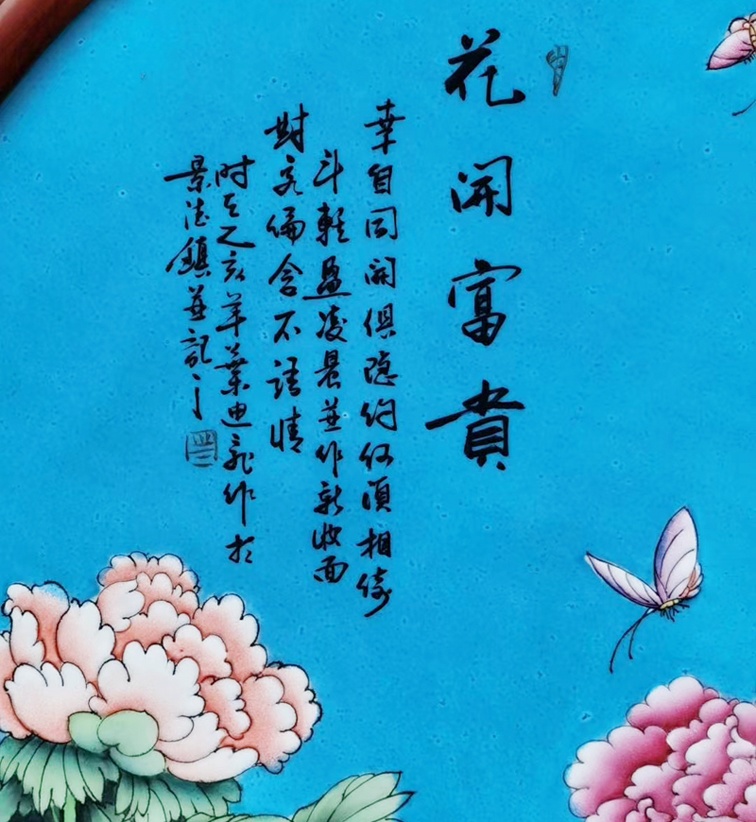 花開富貴
幸自同開俱隐约何须相倚
斗輕盈凌晨並作新妝面
對客偏含不語情
時在乙亥年葉迪龍作於
景德鎮並記之